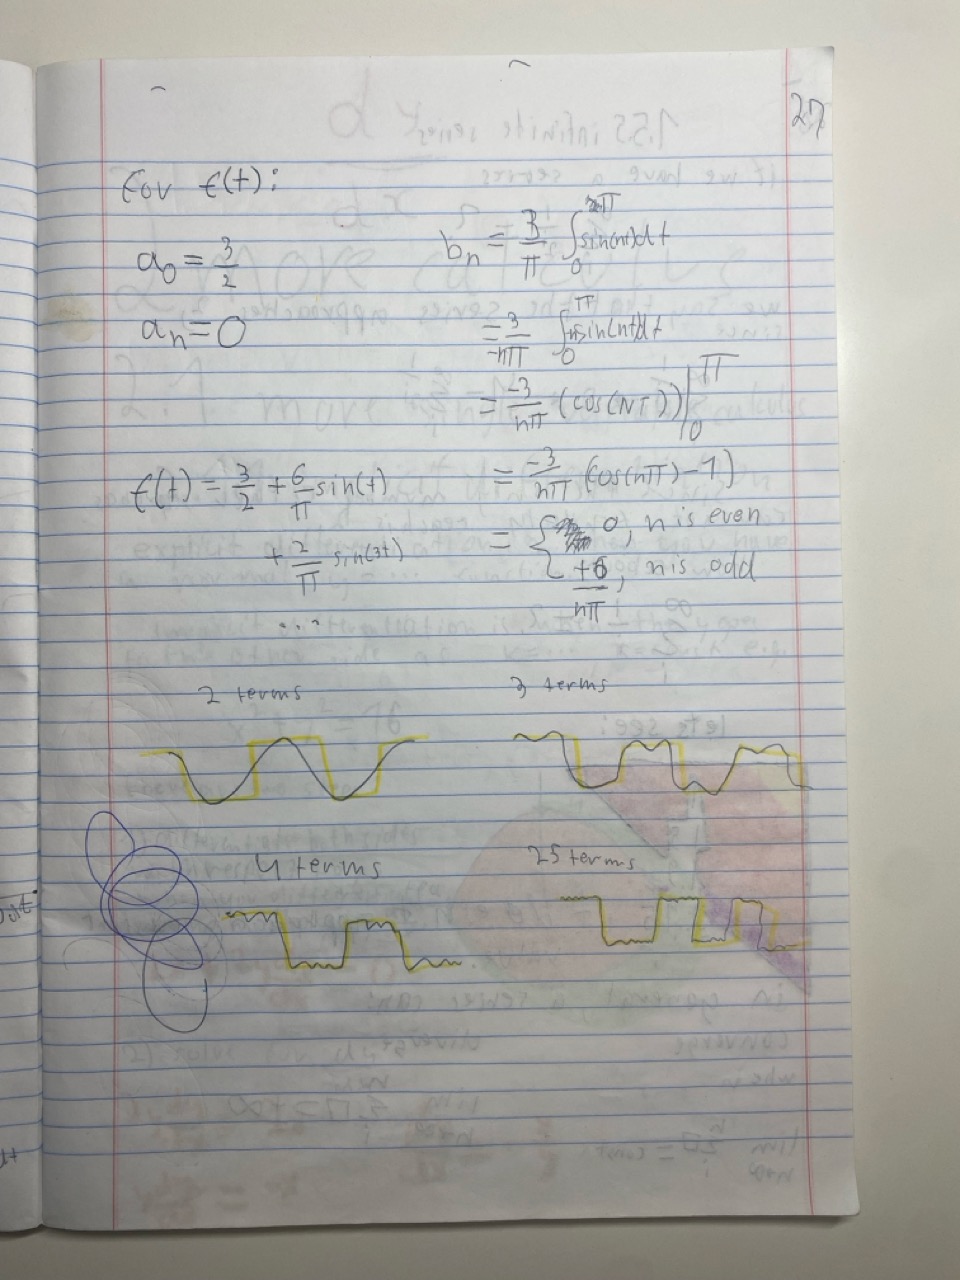 27
For f(t):
a₀ = 3/2
aₙ = 0
bₙ = 3/π ∫₀^π sin(nt)dt
= 3/-nπ ∫₀^π -n sin(nt)dt
= -3/nπ (cos(NT))|₀^π
= -3/nπ (cos(nπ) - 1)
= { 0, n is even
+6/nπ, n is odd
f(t) = 3/2 + 6/π sin(t)
+ 2/π sin(3t)
...
2 terms
3 terms
4 terms
25 terms